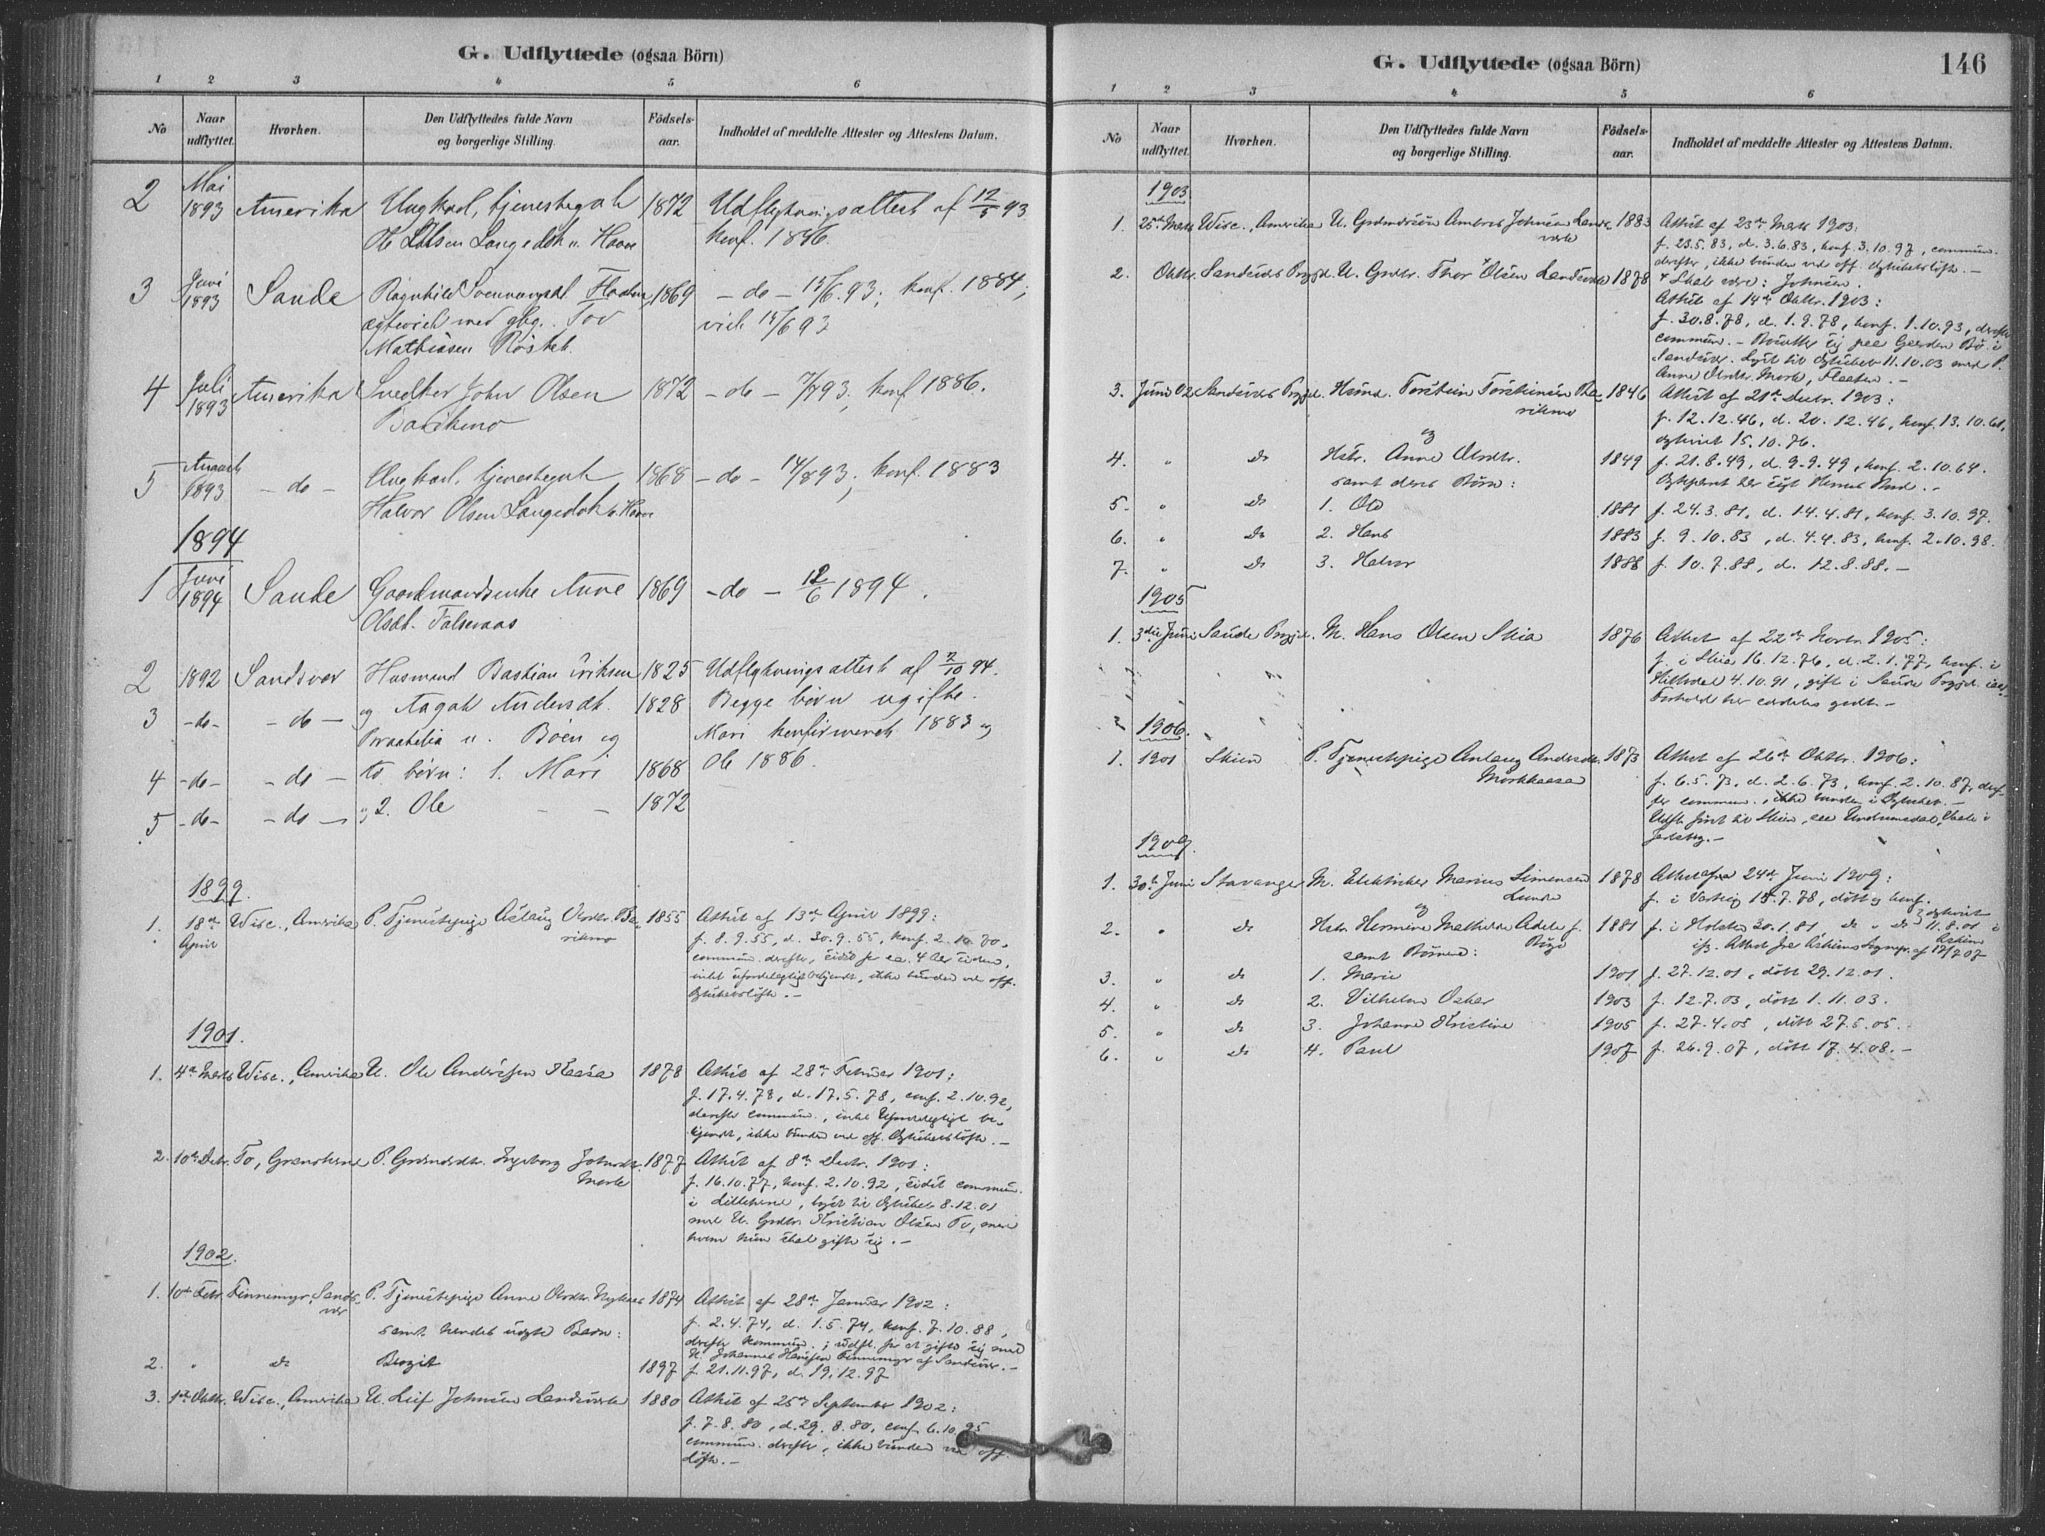 G. Udflyttede (ogsaa Börn)
1 2 3 4 5 6
No Naar udflyttet. Hvorhen. Den Udflyttedes fulde Navn og borgerlige Stilling. Födsels-aar. Indholdet af meddelte Attester og Attestens Datum.
2 Mai 1893 Amerika Ungkarl, tjenestegut 1872 Udflytningsattest af 12/5 93
konf. 1886.
3 Juni 1893 Sande Ragnhild 1869 - do - 15/6.93; konf. 1884;
ægteviet med gbg. Tov viet 14/6 93
Mathiasen
4 Juli 1893 Amerika Snedker John Olsen 1872 - do - 7/7 93, konf 1886.
Barikmo
5 August 1893 - do - Ungkarl, tjenestegut 1868 - do - 14/8 93; konf. 1883
Halvor Olsen Langedok
1894
1 Juni 1894 Sande Gaardmandsenke Anne 1869 - do - 12/6 1894.
Olsdt.
2 1892 Sandsvær Husmand Bastian Eriksen 1825 Udflytningsattest af 2/10 94.
3 - do - - do - og Aagot Andersdt. 1828 Begge börn ugifte.
Braatelia u. Böen og Mari konfirmeret 1883 og
4 - do - - do - to börn: 1. Mari 1868 Ole 1886.
5 - do - - do - og 2. Ole 1872
1899.
1. 18de April Wisc., Amerika P. Tjenestepige Aslaug Olsdtr. Ba- 1855 Attest af 13de April 1899:
rikmo f. 8.9.55, d. 30.9.55, konf. 2.10.70,
commun. derefter,
ikke bunden ved off.
Ægteskabslöfte. -
1901.
1. 4de Marts Wisc., Amerika U. Ole Andersen Kaasa 1878 Attest af 28de Februar 1901:
f. 17.4.78, d. 17.5.78, conf. 2.10.92,
derefter commun., intet Ufordelagtigt be-
kjendt, ikke bunden ved off. Ægteskabslöfte. -
2. 10de Decbr. To, Gransherred P. Ingeborg Johnsdtr. 1877 Attest af 8de Decbr. 1901:
f. 16.10.77, konf. 2.10.92, sidst commun.
i lyst til Ægteskab 8.12.01
med U. Kristian Olsen To, med
hvem hun skal gifte sig. -
1902.
1. 10de Febr. Finnemyr, Sands- P. Tjenestepige Anne Olsdtr. 1874 Attest af 28de Januar 1902:
vær samt hendes uægte Barn: f. 2.4.74, d. 1.5.74, konf. 7.10.88,
derefter kommun.; udfl. for at gifte sig med
U. Johannes Hansen Finnemyr af Sandsvær. -
2. " do Birgit 1897 f. 21.11.97, d. 19.12.97
3. 1ste Oktbr. Wisc., Amerika U. Leif Johnsen Landsverk 1880 Attest af 25de September 1902:
f. 7.8.80, d. 29.8.80, conf. 6.10.95
commun. derefter, ikke bunden ved off.
löfte. -
G. Udflyttede (ogsaa Börn) 146
1 2 3 4 5 6
No Naar udflyttet. Hvorhen. Den Udflyttedes fulde Navn og borgerlige Stilling. Födsels-aar. Indholdet af meddelte Attester og Attestens Datum.
1903
1. 25de Marts Wisc., Amerika U. Ambros Johnsen Lands- 1883 Attest af 23de Marts 1903:
verk f. 23.5.83, d. 3.6.83, konf. 3.10.97, commun.
derefter, ikke bunden ved off. Ægteskabslöfte. -
2. Oktbr. Sandsvær Prgjd. U. Thor Olsen Landsverk 1878 Skal være: Johnsen.
Attest af 14de Oktbr. 1903:
f. 30.8.78, d. 1.9.78, konf. 1.10.93, derefter
commun. - Bosatte sig paa Gaarden Bö i
Sandsvær. Lyst til Ægteskab 11.10.03 med P.
Anne Olsdtr. Mork, Flesberg. -
3. Juni 02 Sandsvær Prgjd. Husmd. Torstein Torsteinsen Ba- 1846 Attest af 21de Decbr. 1903:
rikmo f. 12.12.46, d. 20.12.46, konf. 13.10.61,
og ægteviet 15.10.76.
4. " do Hstr. Anne Olsdtr. 1849 f. 21.8.49, d. 9.9.49, konf. 2.10.64.
samt deres Börn:
5. " do 1. Ole 1881 f. 24.3.81, d. 14.4.81, konf. 3.10.97.
6. " do 2. Hans 1883 f. 9.10.83, d. 4.4.83, konf. 2.10.98.
7. " do 3. Halvor 1888 f. 10.7.88, d. 12.8.88. -
1905
1. 3die Juni Saude Prgjd. M. Hans Olsen Skia 1876 Attest af 22de Novbr. 1905:
f. i Skia 16.12.76, d. 2.1.77, konf. i
Hitterdal 4.10.91, gift i Saude Prgjd.
Forhold her særdeles godt. -
1906.
1. 1901 Skien P. Tjenestepige Anlaug Andersdtr. 1873 Attest af 26de Oktbr. 1906:
Morkkaasa f. 6.5.73, d. 2.6.73, konf. 2.10.87, deref-
ter commun., ikke bunden i Ægteskab. -
Udfl. först til Skien,
Jarlsberg. -
1909.
1. 30te Juni Stavanger M. Elektriker Marius Simonsen 1878 Attest fra 24de Juni 1909:
Lunde f. i 15.7.78, döbt og konf.
og
2. " do Hstr. Hermine Mathilde Adele f. 1881 f. i Holsten 30.1.81, do " do ægteviet 11.8.01 i
Böge Askim
samt Börnene: if. Attest fra Askims Sognepr. af 17/7 07
3. " do 1. Marie 1901 f. 27.12.01, döbt 29.12.01.
4. " do 2. Vilhelm Oskar 1903 f. 12.7.03, döbt 1.11.03.
5. " do 3. Johanne Kristine 1905 f. 27.4.05, döbt 27.5.05.
6. " do 4. Paul 1907 f. 26.9.07, döbt 17.4.08. -